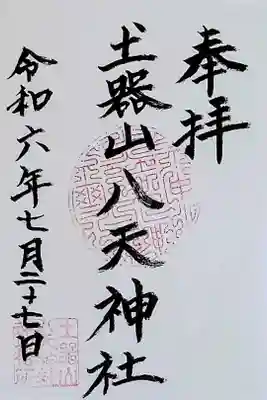 奉拝
土器山八天神社
令和六年七月二十七日